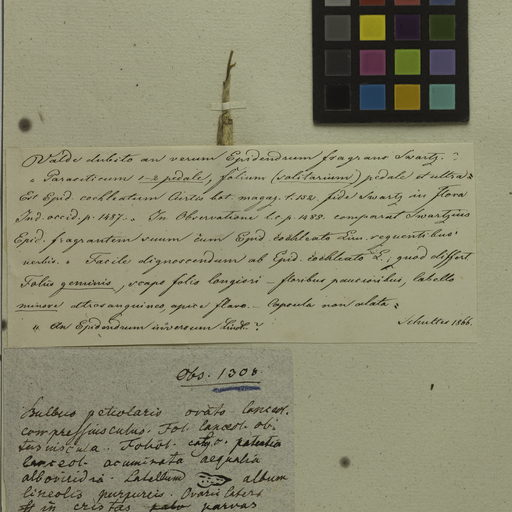 Valde dubito an verum Epidendrum fragrans Swartz. ?
"Parasiticum 1-2 pedale, folium (solitarium) pedale et ultra"
Est Epid. cochleatum Curtis bot. magaz. t. 152 fide Swartz in flora
Ind. occid. p. 1487. " In Observatione l. c. p. 1488. comparat Swartzius
Epid. fragrantem suum cum Epid. cochleato Lin. sequentibus
verbis. " Facile dignoscendum ab Epid. cochleato L.; quod differt
Foliis geminis, scapo folio longiori — floribus paucioribus, labello
minore atrosanguineo, apice flavo. — Capsula non alata "
4. An Epidendrum inversum Lindl. ?
Schultes 1866.
Obs. 1308
Bulbus petiolaris ovato lanceol.
compressiusculus. Fol. lanceol. ob-
tusiuscula. Foliol. patentia
lanceol. acuminata aequalia
alboviridia. Labellum album
lineolis purpureis. Ovarii latera
in cristas parvas